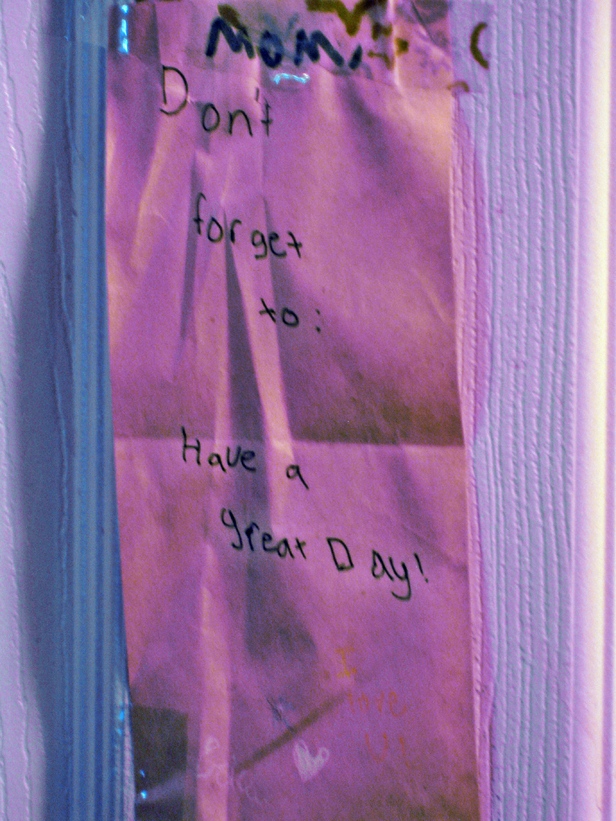 MOM,
Don't
forget
to:
Have a
great Day!
I
love
U!